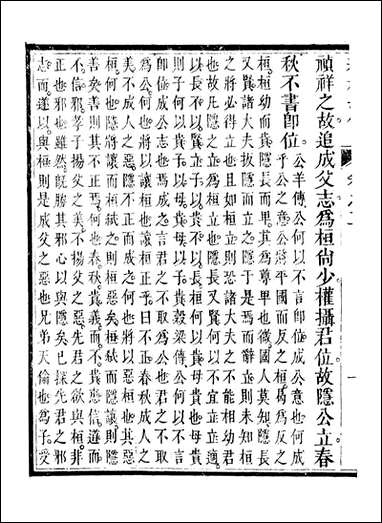 禎祥之故追成父志爲桓尙少權攝君位故隱公立春
秋不書卽位
公羊傳公何以不言卽位成公意也何成
乎公之意公將平國而反之桓曷爲反之
桓桓幼而貴隱長而卑其爲尊卑也微國人莫知隱長
又賢諸大夫扳隱而立之隱於是焉而辭立則未知桓
之將必得立也且如桓立則恐諸大夫之不能相幼君
也故凡隱之立爲桓立也隱長又賢何以不宜立立適
以長不以賢立子以貴不以長桓何以貴母貴也母貴
則子何以貴子以母貴母以子貴穀梁傳公何以不言
卽位成公志也焉成之言君之不取爲公也君之不取
爲公何也將以讓桓也讓桓正乎曰不正春秋成人之
美不成人之惡隱不正而成之何也將以惡桓也其惡
桓何也隱將讓而桓弒之則桓惡矣桓弒而隱讓則隱
善矣善則其不正焉何也春秋貴義而不貴惠信道而
不信邪孝子揚父之美不揚父之惡先君之欲與桓非
正也邪也雖然旣勝其邪心以與隱矣已探先君之邪
志而遂以與桓則是成父之惡也兄弟天倫也爲子受